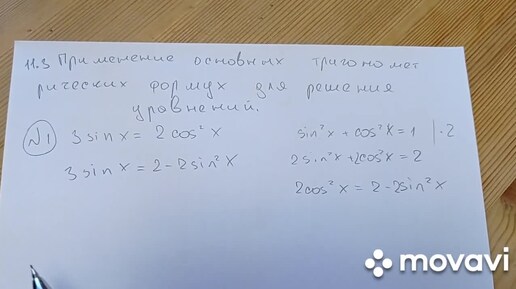 11.3 Применение основных тригономет
рических формул для решения
уравнений.
№1 3 sin x = 2 cos² x
3 sin x = 2 - 2 sin² x
sin² x + cos² x = 1 | · 2
2 sin² x + 2 cos² x = 2
2 cos² x = 2 - 2 sin² x
movavi